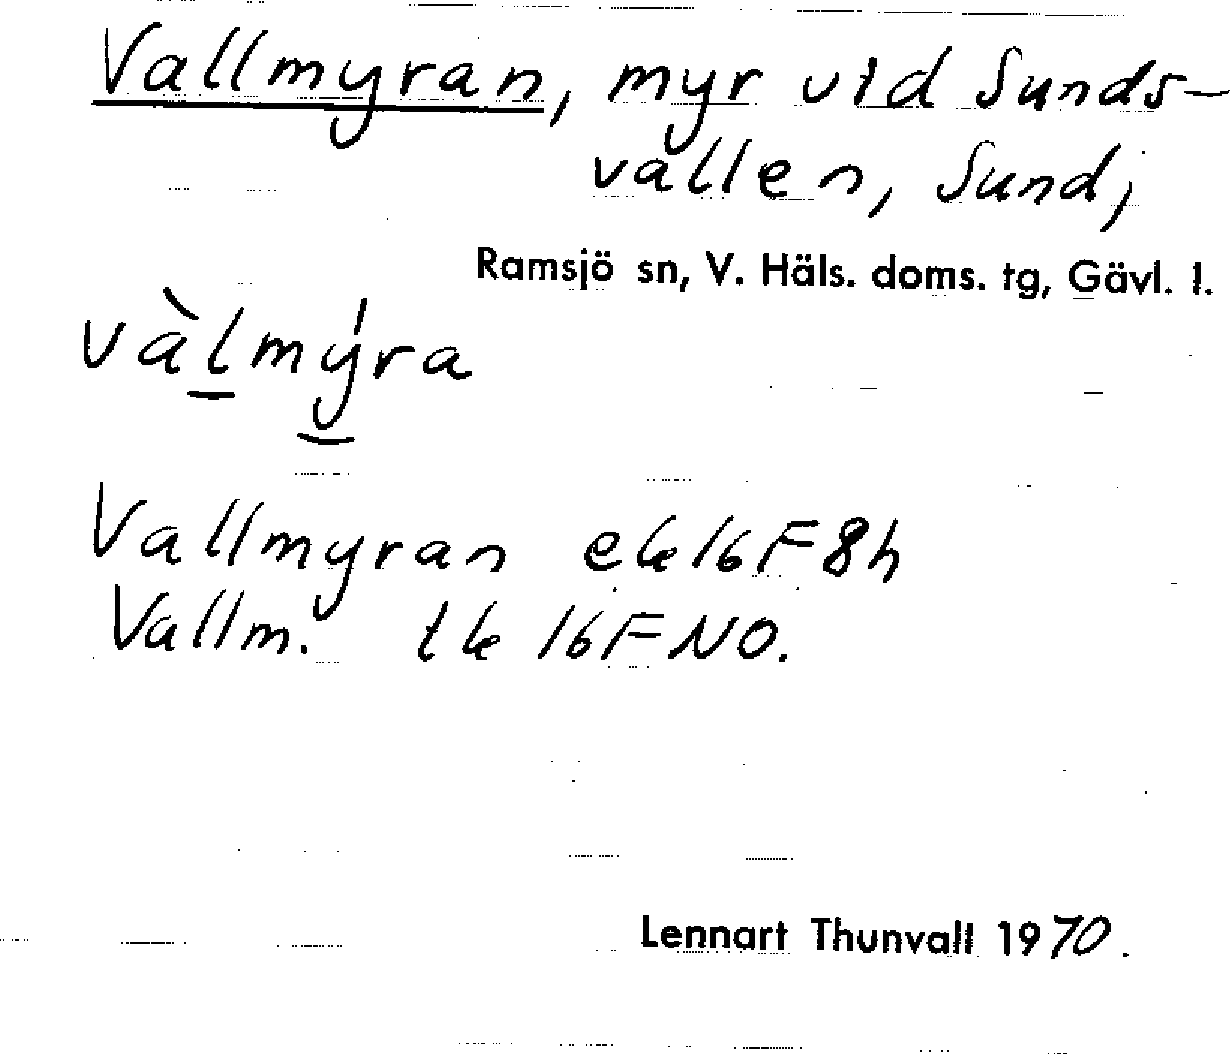 Vallmyran, myr vid Sunds-
vallen, Sund;
Ramsjö sn, V. Häls. doms. tg, Gävl. l.
vàlmýra
Vallmyran ek 16F8h
Vallm. tk 16FNO.
Lennart Thunvall 1970.